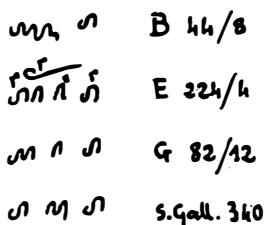 B 44/8
E 224/4
G 82/12
S.Gall. 340